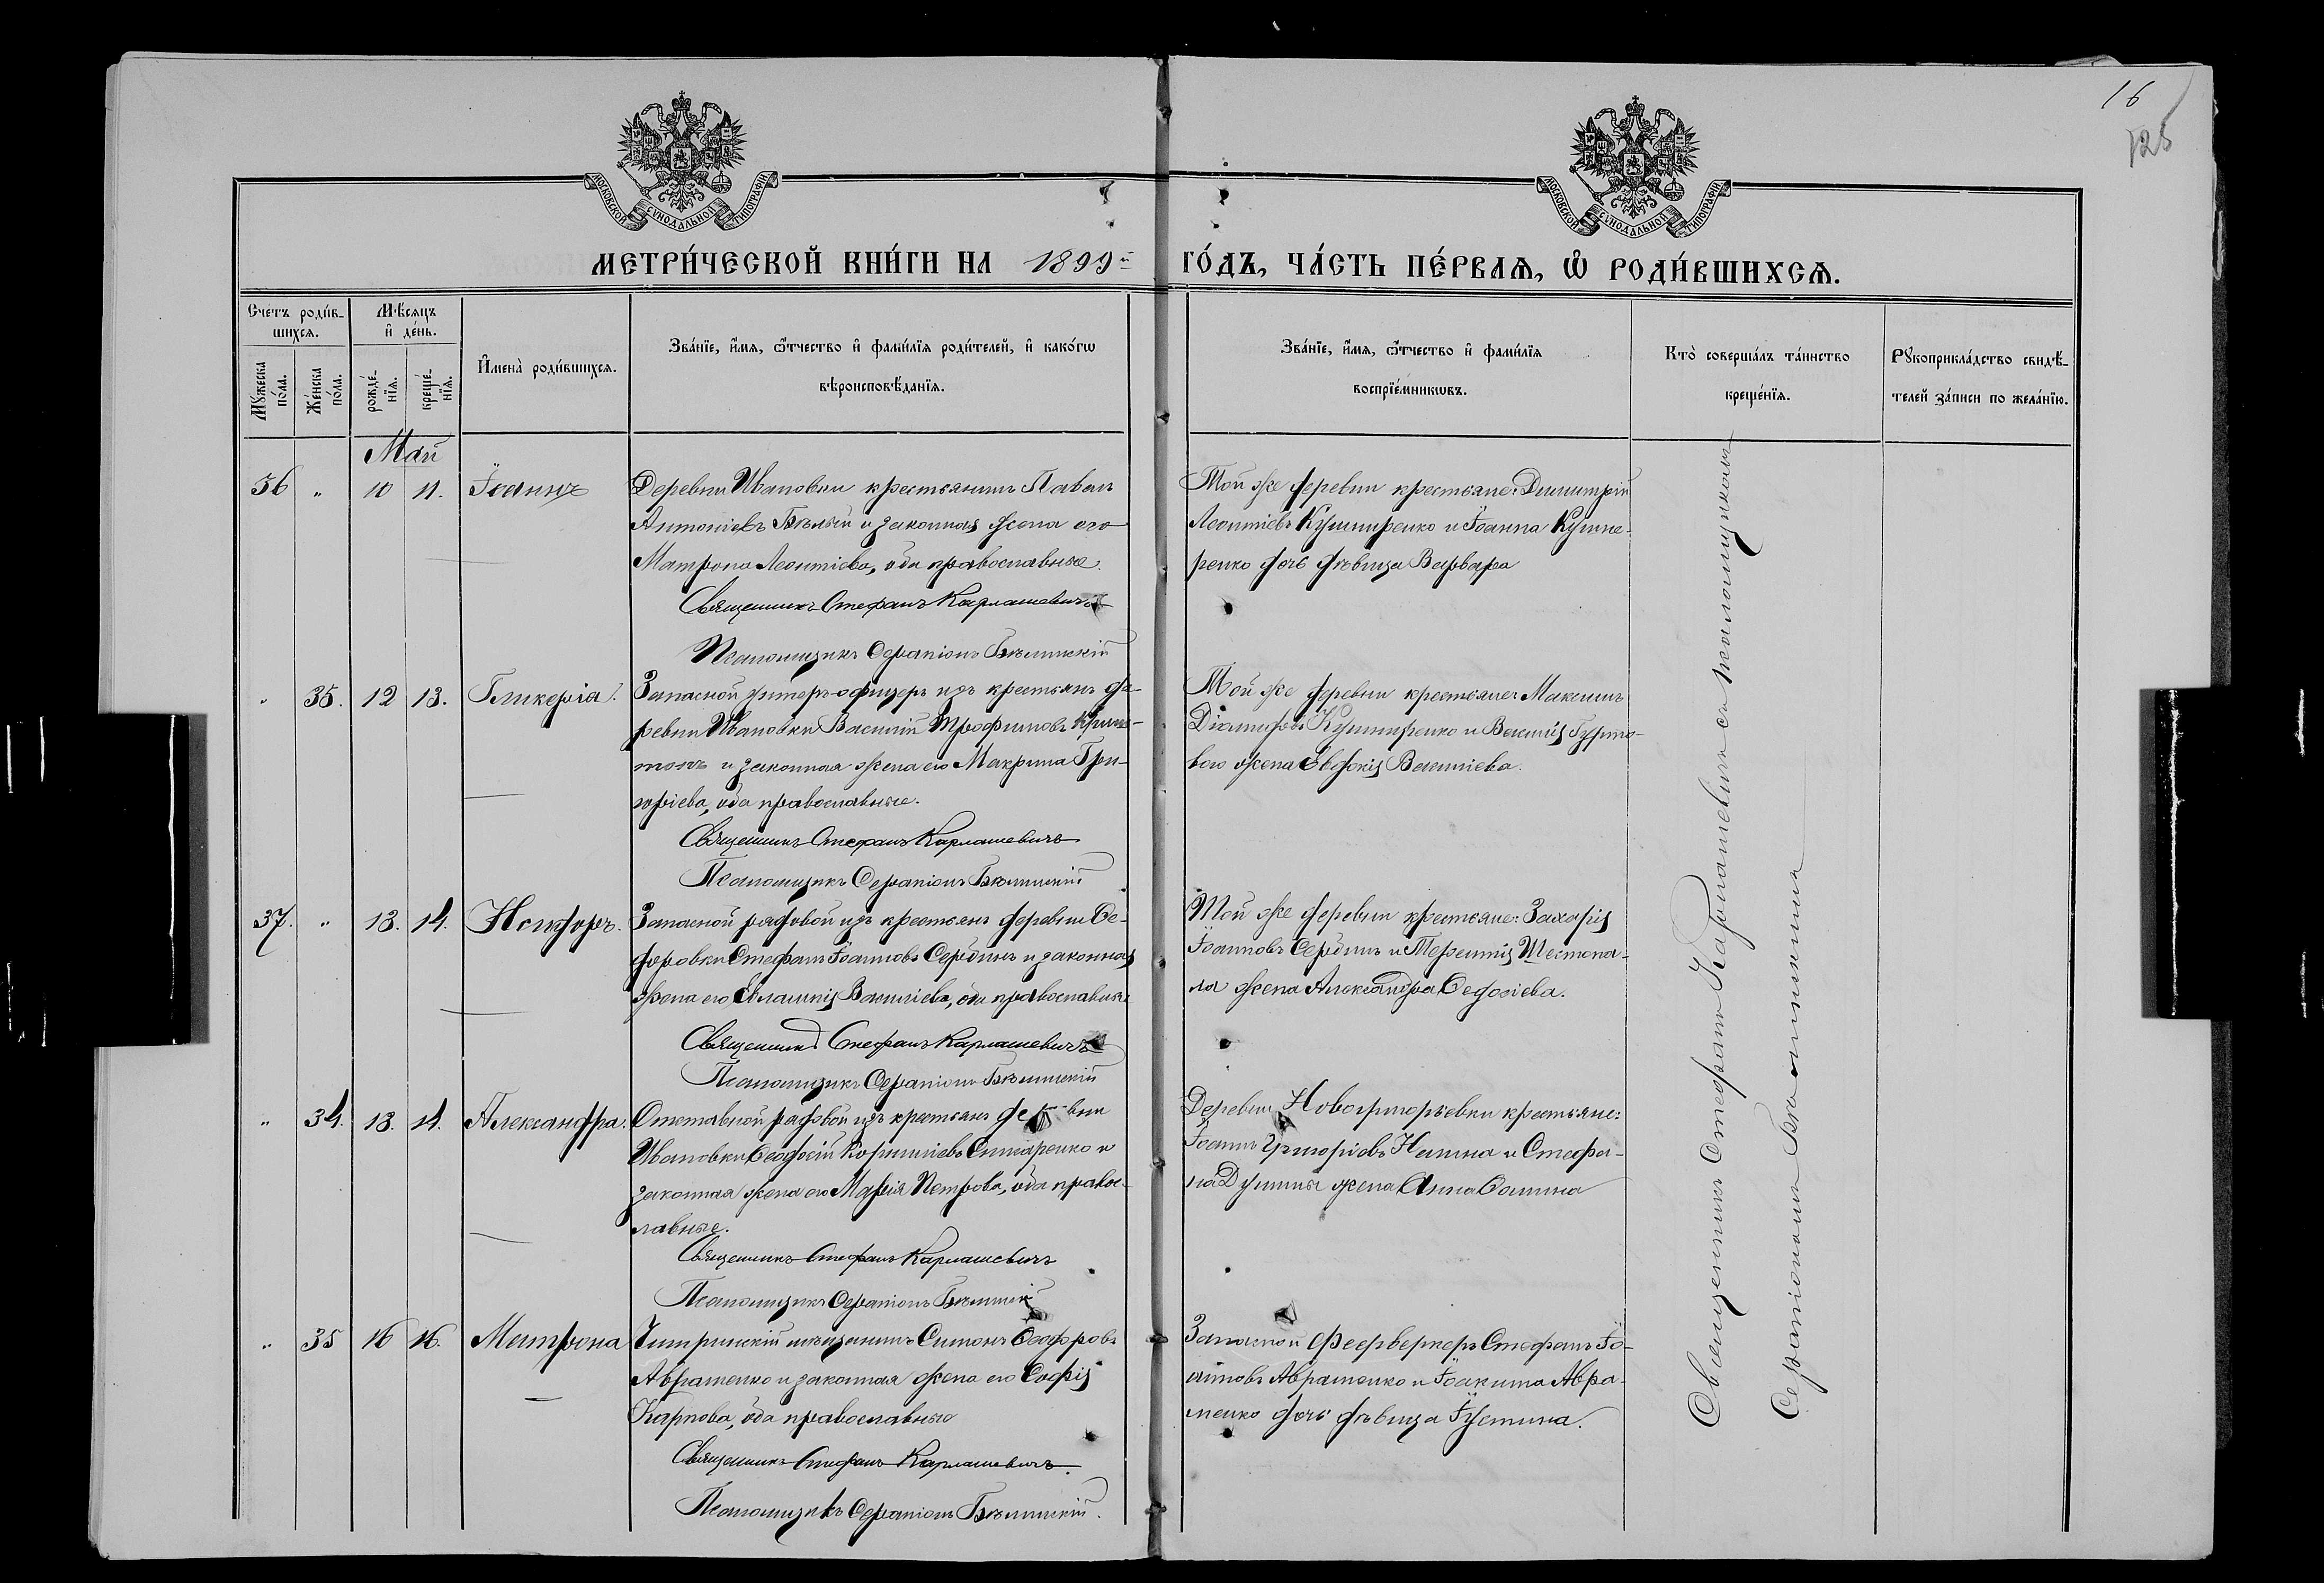 16
125
МОСКОВСКОЙ СѴНОДАЛЬНОЙ ТИПОГРАФІИ
МОСКОВСКОЙ СѴНОДАЛЬНОЙ ТИПОГРАФІИ
МЕТРИ́ЧЕСКОЙ КНИ́ГИ НА 1899й ГО́ДЪ, ЧА́СТЬ ПЕ́РВАѦ, Ѿ РОДИ́ВШИХСѦ.
Счетъ роди́в-
шихсѧ.
Мꙋ́жеска
по́ла.
Же́нска
по́ла.
Мѣ́сяцъ
и҆ де́нь.
рожде́-
нїѧ.
креще́-
нїѧ.
И҆мена̀ роди́вшихсѧ.
Зва́нїе, и҆́мѧ, ѻ҆́тчество и҆ фами́лїѧ роди́телей, и҆ како́гѡ
вѣроисповѣ́данїѧ.
Зва́нїе, и҆́мѧ, ѻ҆́тчество и҆ фами́лїѧ
воспрїе́мникѡвъ.
Кто̀ соверша́лъ та́инство
креще́нїѧ.
Рꙋкоприкла́дство свидѣ́-
телей за́писи по жела́нїю.
Май
36 „ 10 11. Іоаннъ
Деревни Ивановки крестьянинъ Павелъ
Антоніевъ Бѣлый и законная жена его
Матрона Леонтіева, оба православные.
Священникъ Стефанъ Карпашевичъ
Псаломщикъ Серапіонъ Бѣлинскій
Той же деревни крестьяне: Димитрій
Леонтіевъ Кушниренко и Іоанна Кушне-
ренко дочь дѣвица Варвара
„ 35. 12 13. Гликерія.
Запасной унтеръ-офицеръ изъ крестьянъ де-
ревни Ивановки Василій Трофимовъ
и законная жена его Макрина Гри-
горіева, оба православные.
Священникъ Стефанъ Карпашевичъ
Псаломщикъ Серапіонъ Бѣлинскій
Той же деревни крестьяне: Максимъ
Кушниренко и Василія
жена Евдокія Василіева.
37. „ 13. 14. Никифоръ.
Запасной рядовой изъ крестьянъ деревни Ѳе-
доровки Стефанъ Іоанновъ Сердинъ и законная
жена его Евлампія Василіева, оба православные
Священникъ Стефанъ Карпашевичъ
Псаломщикъ Серапіонъ Бѣлинскій
Той же деревни крестьяне: Захарія
Іоанновъ Сердинъ и Терентія Шестопа-
ла жена Александра Ѳедосіева.
„ 34. 13. 14. Александра.
Отставной рядовой изъ крестьянъ деревни
Ивановки Ѳеодосій Корниліевъ и
законная жена его Марія Петрова, оба правос-
лавные.
Священникъ Стефанъ Карпашевичъ
Псаломщикъ Серапіонъ Бѣлинскій
Деревни Новогригорьевки крестьяне:
Іоаннъ Григоріевъ и Стефа-
на жена Анна Ѳомина
„ 35 16 16. Матрона
Чигринскій мѣщанинъ Симонъ Ѳеодоровъ
Авраменко и законная жена его Софія
Карпова, оба православные
Священникъ Стефанъ Карпашевичъ.
Псаломщикъ Серапіонъ Бѣлинскій.
Запасной фейерверкеръ Стефанъ Іо-
анновъ Авраменко и Іоакима Авра-
менко дочь дѣвица Іустина.
Священникъ Стефанъ Карпашевичъ съ псаломщикомъ
Серапіономъ Бѣлинскимъ